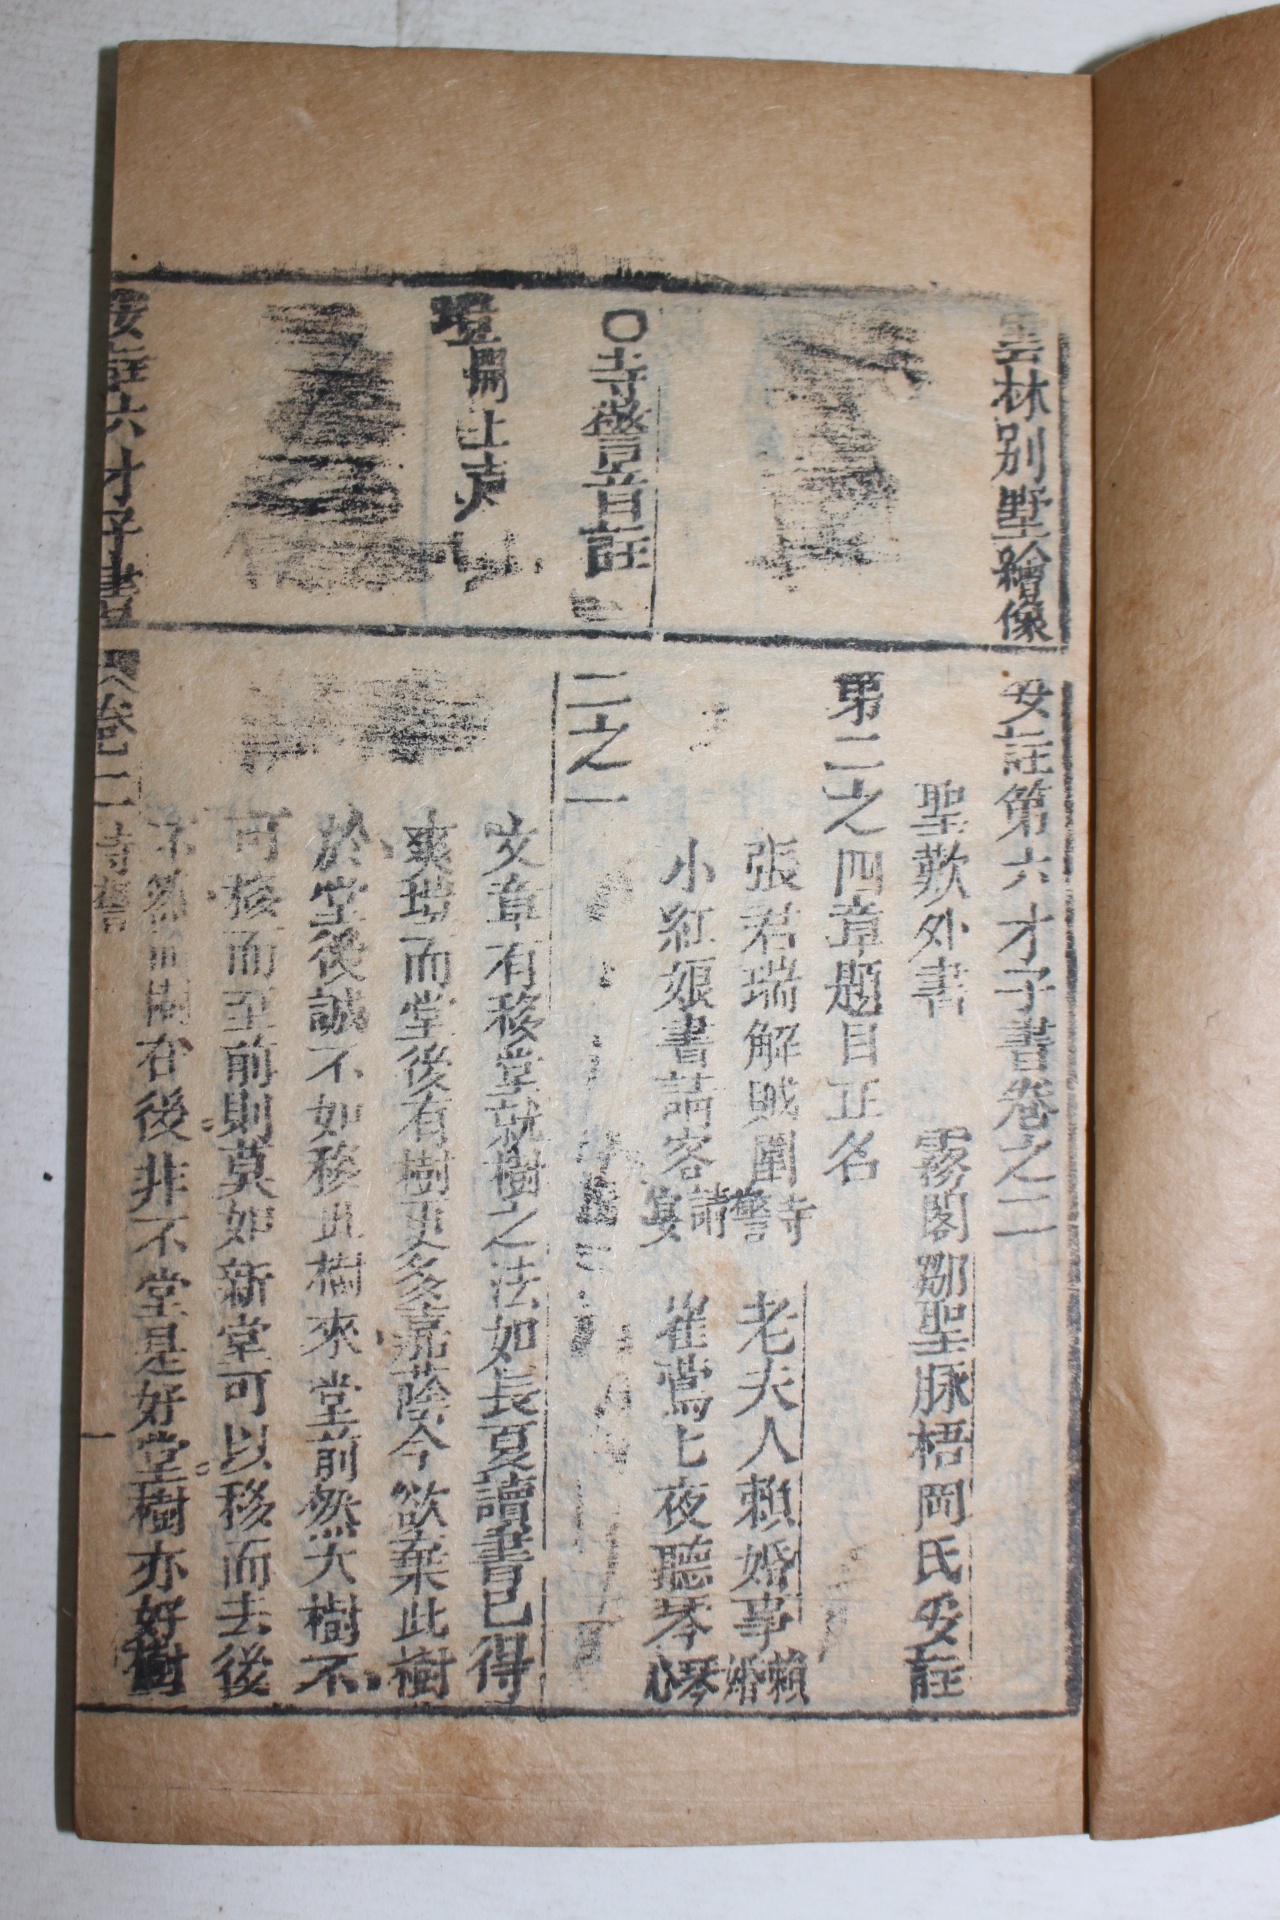 雲林別墅繪像
妥註第六才子書卷之二
聖歎外書　霧閣鄒聖脉梧岡氏妥註
第二之四章題目正名
張君瑞解賊圍寺警　老夫人賴婚事賴婚
小紅娘書請客請宴　崔鶯上夜聽琴琴心
○寺警音註
二之一
文章有移堂就樹之法如長夏讀書已得
爽塏而堂後有樹更多嘉蔭今欲棄此樹
於堂後誠不如移此樹來堂前然大樹不
可移而至前則莫如新堂可以移而去後
不然而樹在後非不堂是好堂樹亦好樹
妥註六才子書
卷二
寺警
一